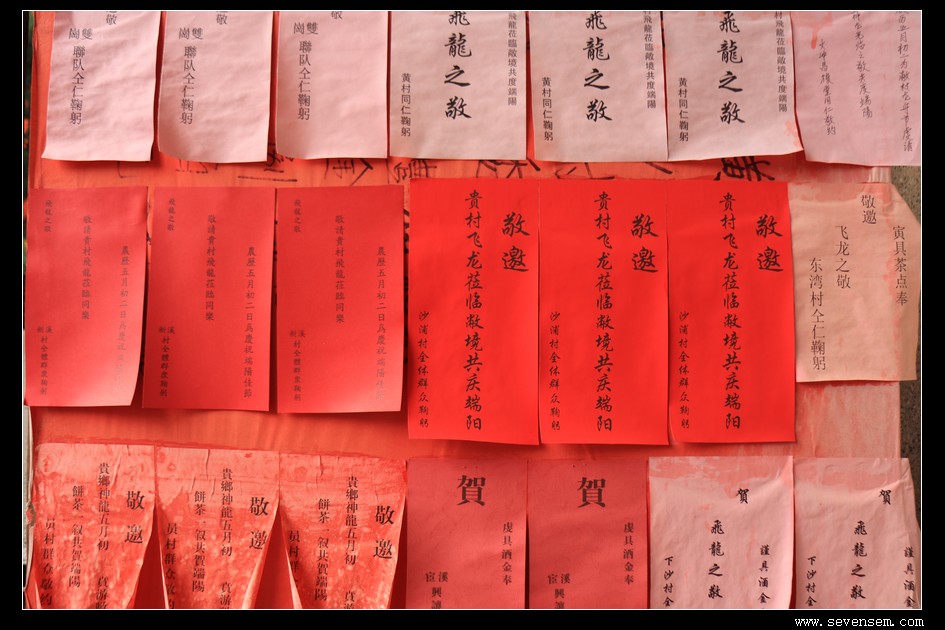 敬
雙
崗 聯队仝仁鞠躬
敬
雙
崗 聯队仝仁鞠躬
敬
雙
崗 聯队仝仁鞠躬
飛龍莅臨敝境共度端陽
飛龍之敬
黄村同仁鞠躬
飛龍莅臨敝境共度端陽
飛龍之敬
黄村同仁鞠躬
村飛龍莅臨敝境共度端陽
飛龍之敬
黄村同仁鞠躬
農歷五月初二日爲慶祝端陽佳節
敬請貴村飛龍莅臨同樂
飛龍之敬
村全體群衆鞠躬
農歷五月初二日爲慶祝端陽佳節
敬請貴村飛龍莅臨同樂
飛龍之敬
村全體群衆鞠躬
農歷五月初二日爲慶祝端陽佳節
敬請貴村飛龍莅臨同樂
飛龍之敬
村全體群衆鞠躬
敬邀
贵村飞龙莅临敝境共庆端阳
沙浦村全体群众鞠躬
敬邀
贵村飞龙莅临敝境共庆端阳
沙浦村全体群众鞠躬
敬邀
贵村飞龙莅临敝境共庆端阳
沙浦村全体群众鞠躬
寅具茶点奉
敬邀
飞龙之敬
东湾村仝仁鞠躬
敬邀
貴鄉神龍五月初
餅茶一叙共賀端陽
员村群众敬约
敬邀
貴鄉神龍五月初
餅茶一叙共賀端陽
员村群众敬
敬邀
貴鄉神龍五月初
餅茶一叙共賀端陽
员村群
賀
虔具酒金奉
賀
虔具酒金奉
賀
謹具酒金
飛龍之敬
下沙村全
賀
謹具酒金
飛龍之敬
下沙村全
www.sevensem.com